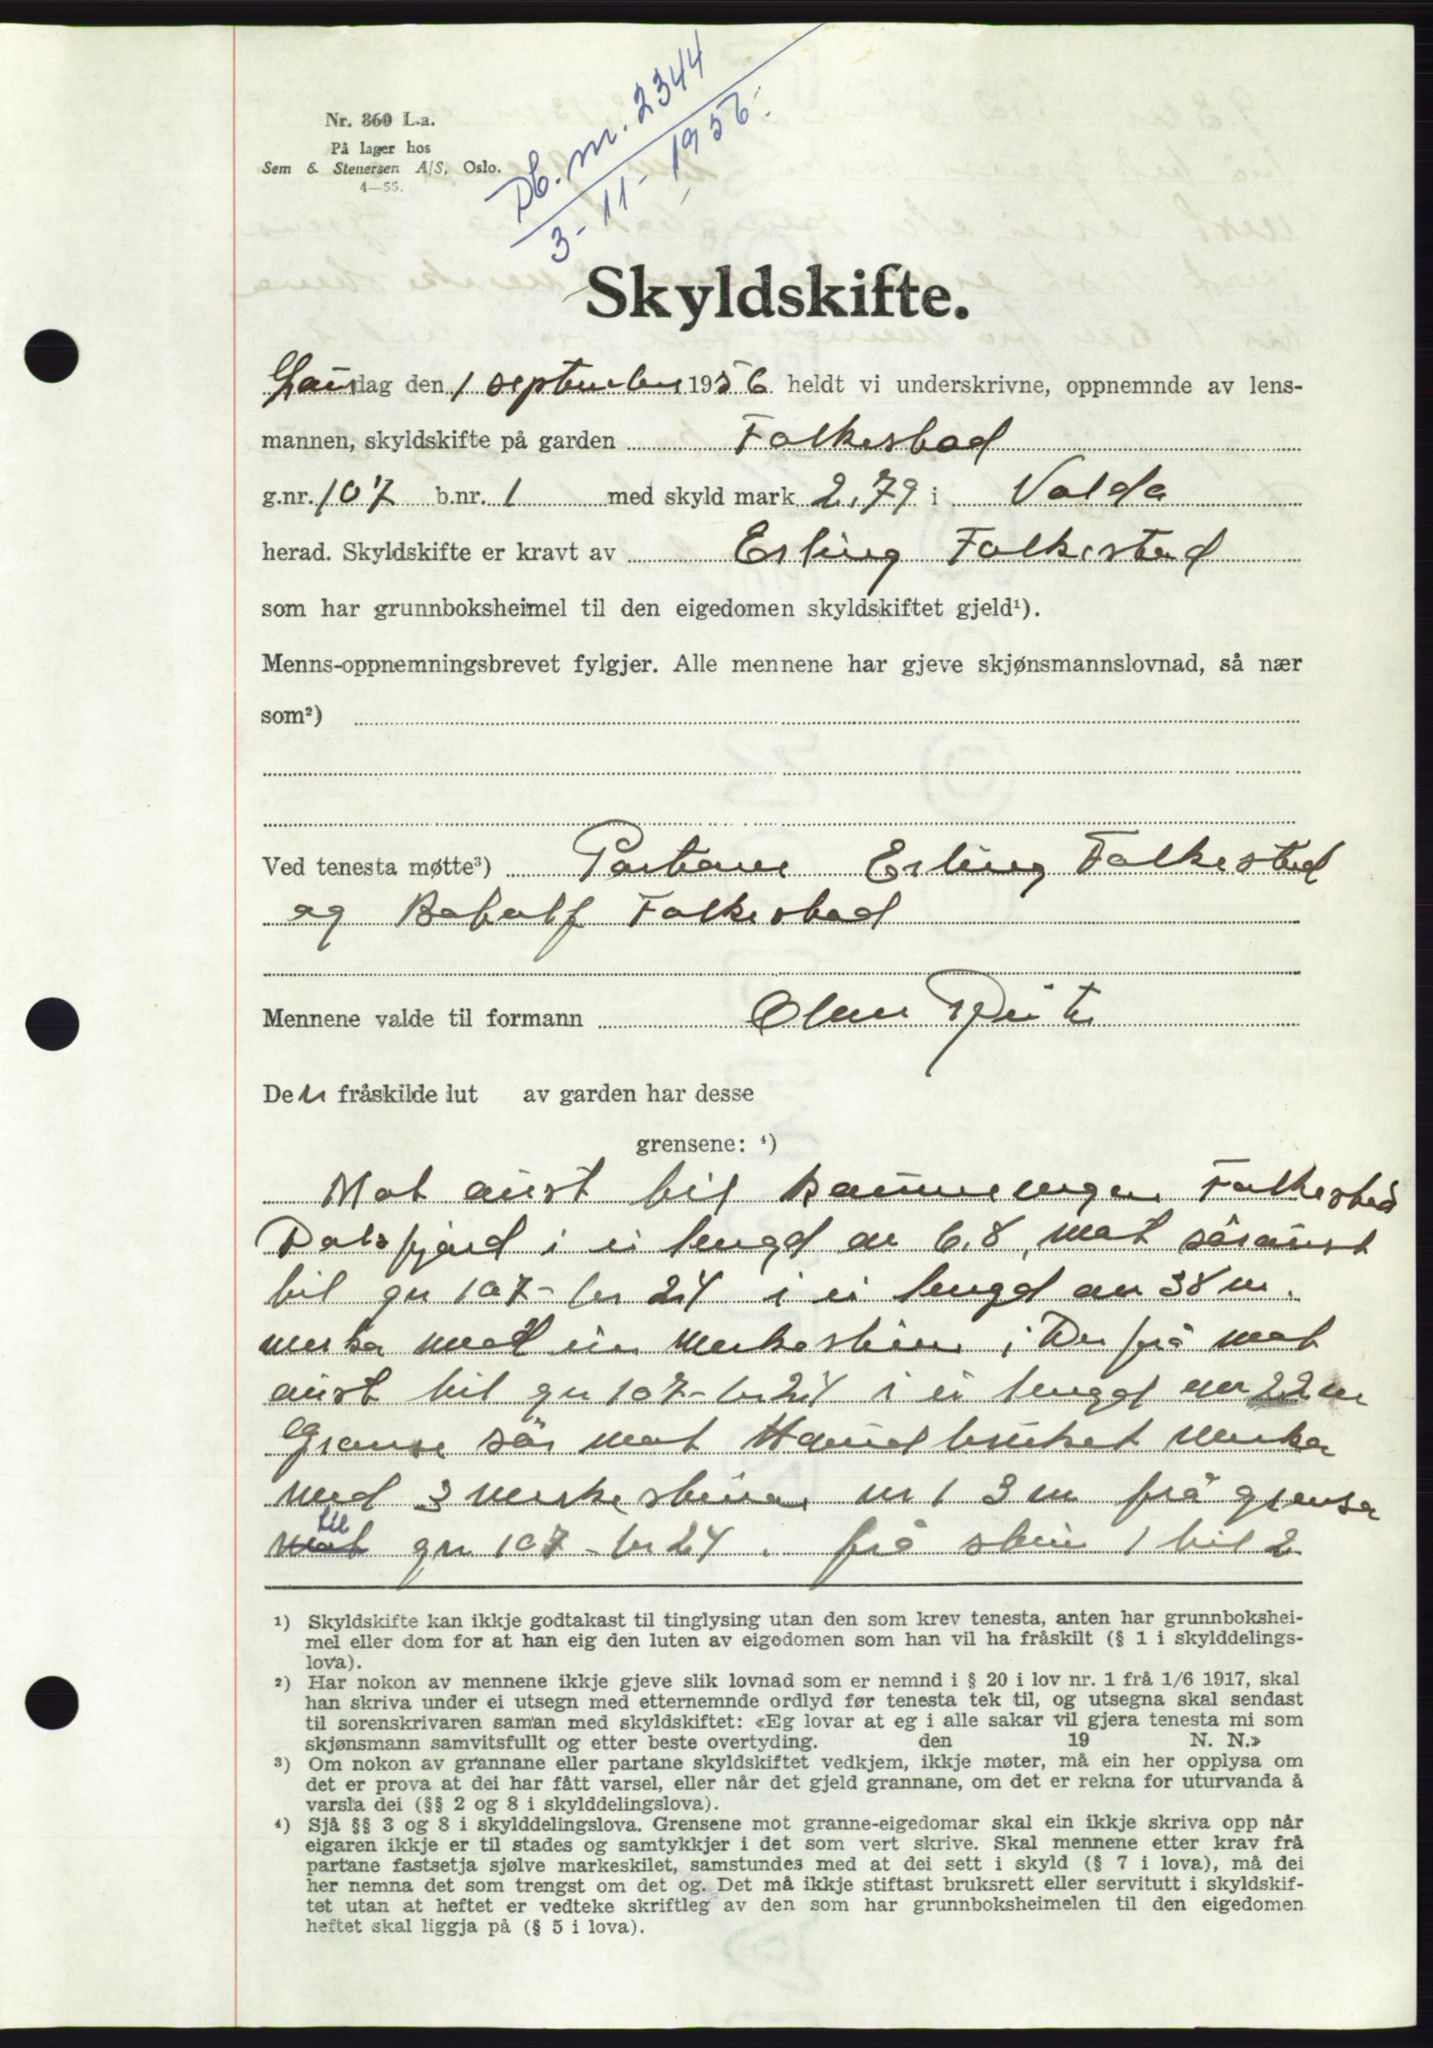 Nr. 860 L.a.
På lager hos
Sem & Stenersen A/S, Oslo.
4—55.
Db. nr. 2344
3-11-1956.
Skyldskifte.
Laurdag den 1 september 1956 heldt vi underskrivne, oppnemnde av lens-
mannen, skyldskifte på garden Folkestad
g.nr. 107 b.nr. 1 med skyld mark 2,79 i Volda
herad. Skyldskifte er kravt av Erling Folkestad
som har grunnboksheimel til den eigedomen skyldskiftet gjeld¹).
Menns-oppnemningsbrevet fylgjer. Alle mennene har gjeve skjønsmannslovnad, så nær
som²)
Ved tenesta møtte³) Partane Erling Folkestad
og Botolf Folkestad
Mennene valde til formann
Den fråskilde lut av garden har desse
grensene: ⁴)
Mot aust til Folkestad
Dalsfjord i ei lengd av 6,8 mot søraust
til gn 107 - bn 24 i ei lengd av 38 m.
merka med ein merkestein i Der frå mot
aust til gn 107 - bn 24 i ei lengd av 22 m
Grense sør mot Hovudbruket merka
med 3 merkesteinar nr 1 3 m frå grensa
mot til gn 107 - bn 24. frå stein 1 til 2
¹) Skyldskifte kan ikkje godtakast til tinglysing utan den som krev tenesta, anten har grunnbokshei-
mel eller dom for at han eig den luten av eigedomen som han vil ha fråskilt (§ 1 i skylddelings-
lova).
²) Har nokon av mennene ikkje gjeve slik lovnad som er nemnd i § 20 i lov nr. 1 frå 1/6 1917, skal
han skriva under ei utsegn med etternemnde ordlyd før tenesta tek til, og utsegna skal sendast
til sorenskrivaren saman med skyldskiftet: «Eg lovar at eg i alle sakar vil gjera tenesta mi som
skjønsmann samvitsfullt og etter beste overtyding. den 19 N. N.»
³) Om nokon av grannane eller partane skyldskiftet vedkjem, ikkje møter, må ein her opplysa om
det er prova at dei har fått varsel, eller når det gjeld grannane, om det er rekna for uturvanda å
varsla dei (§§ 2 og 8 i skylddelingslova).
⁴) Sjå §§ 3 og 8 i skylddelingslova. Grensene mot granne-eigedomar skal ein ikkje skriva opp når
eigaren ikkje er til stades og samtykkjer i det som vert skrive. Skal mennene etter krav frå
partane fastsetja sjølve markeskilet, samstundes med at dei sett i skyld (§ 7 i lova), må dei
her nemna det som trengst om det og. Det må ikkje stiftast bruksrett eller servitutt i skyldskif-
tet utan at heftet er vedteke skriftleg av den som har grunnboksheimelen til den eigedomen
heftet skal liggja på (§ 5 i lova).